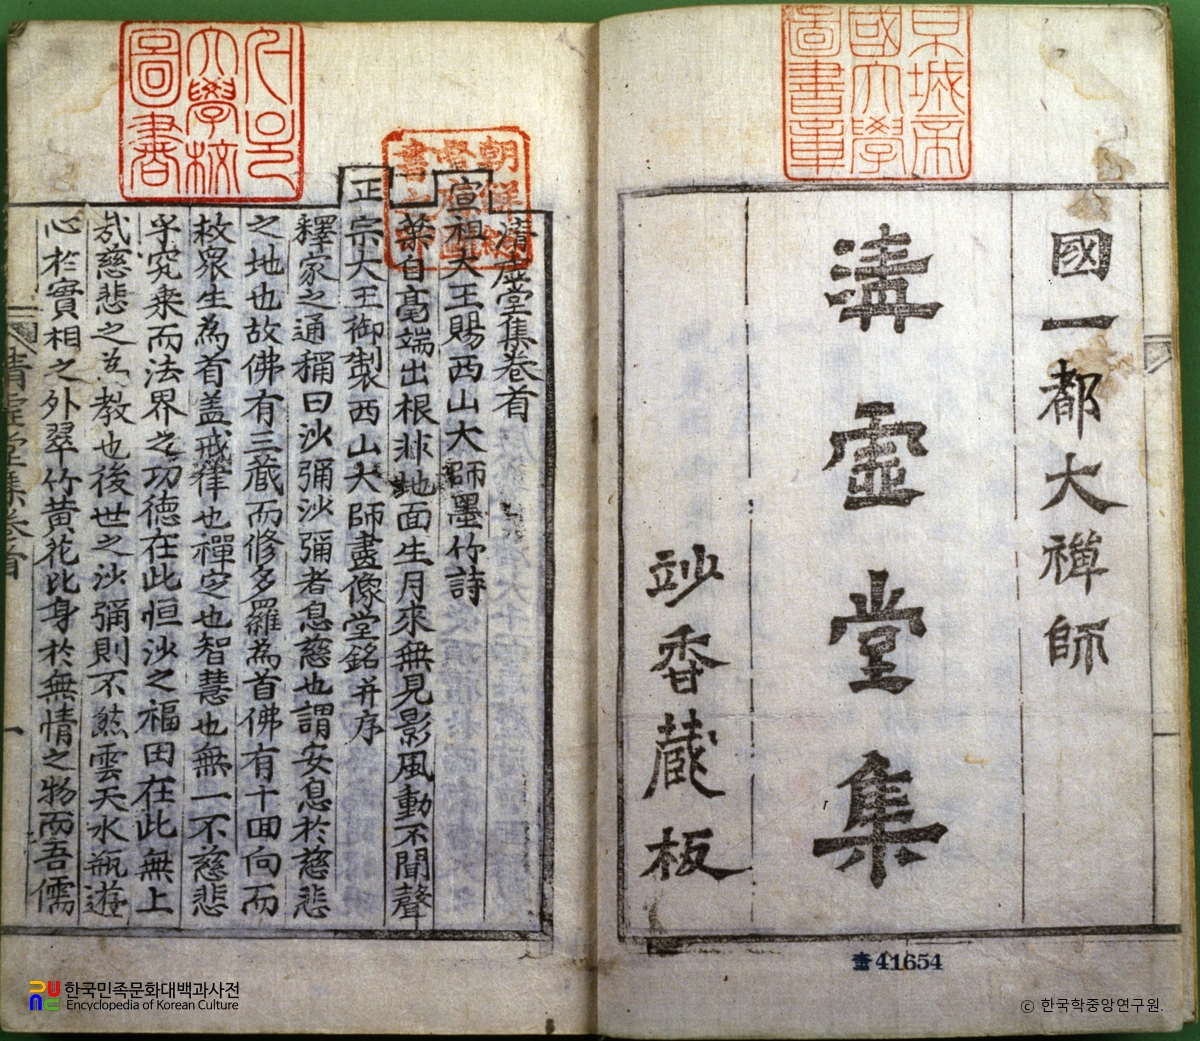 京城帝
國大學
圖書章
國一都大禪師
淸虛堂集
竗香蔵板
서울
大學校
圖書
朝鮮總
督府圖
書之印
淸虛堂集卷首
宣祖大王賜西山大師墨竹詩
葉自毫端出根非地面生月來無見影風動不聞聲
正宗大王御製西山大師畫像堂銘并序
釋家之通稱曰沙彌沙彌者息慈也謂安息於慈悲
之地也故佛有三藏而修多羅為首佛有十回向而
救衆生為首盖戒律也禪定也智慧也無一不慈悲
乎究乗而法界之功德在此恒沙之福田在此無上
㢤慈悲之為教也後世之沙彌則不然雲天水瓶遊
心於實相之外翠竹黄花比身於無情之物而吾儒
淸虛堂集卷首
一
圖41654
한국민족문화대백과사전
Encyclopedia of Korean Culture
ⓒ 한국학중앙연구원.